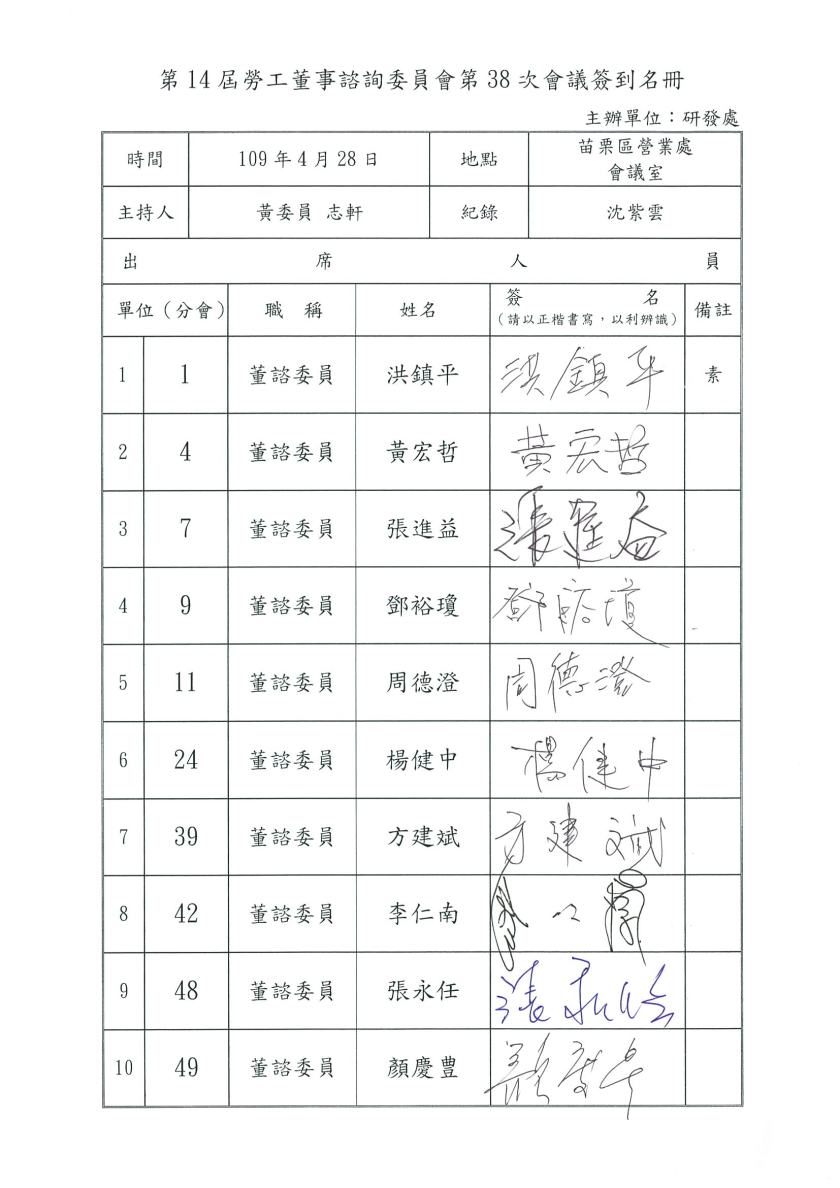 第14屆勞工董事諮詢委員會第38次會議簽到名冊
主辦單位：研發處
時間 109年4月28日 地點 苗栗區營業處
會議室
主持人 黃委員 志軒 紀錄 沈紫雲
出 席 人 員
單位（分會） 職 稱 姓名 簽 名 備註
（請以正楷書寫，以利辨識）
1 1 董諮委員 洪鎮平 洪鎮平 素
2 4 董諮委員 黃宏哲 黃宏哲
3 7 董諮委員 張進益 張進益
4 9 董諮委員 鄧裕瓊 鄧裕瓊
5 11 董諮委員 周德澄 周德澄
6 24 董諮委員 楊健中 楊健中
7 39 董諮委員 方建斌 方建斌
8 42 董諮委員 李仁南
9 48 董諮委員 張永任
10 49 董諮委員 顏慶豊